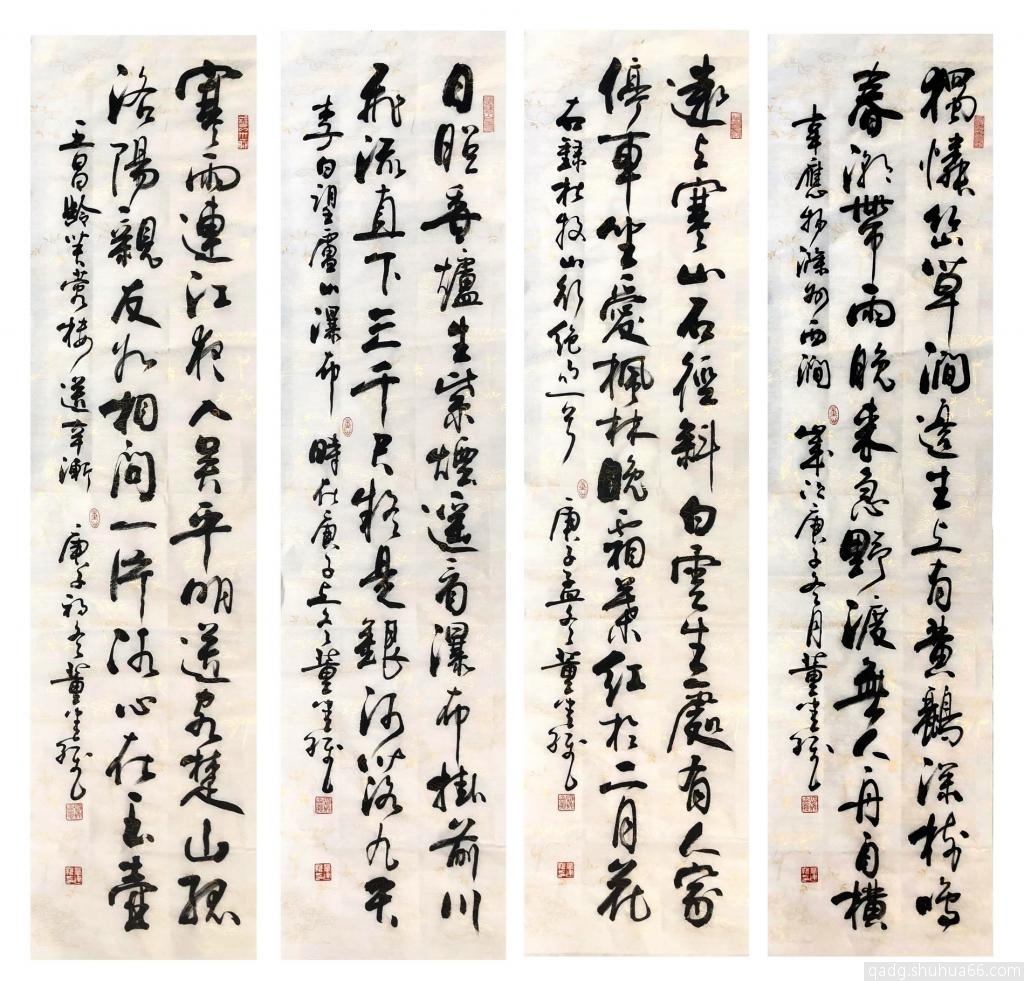 獨憐幽草澗邊生上有黃鸝深樹鳴
春潮帶雨晚來急野渡無人舟自橫
韋應物滁州西澗 歲次庚子冬月董
遠上寒山石徑斜白雲生處有人家
停車坐愛楓林晚霜葉紅於二月花
右錄杜牧山行絕句一首 庚子孟冬董
日照香爐生紫煙遙看瀑布掛前川
飛流直下三千尺疑是銀河落九天
李白望廬山瀑布 時在庚子之冬董
寒雨連江夜入吳平明送客楚山孤
洛陽親友如相問一片冰心在玉壺
王昌齡芙蓉樓送辛漸 庚子初冬董
qadg.shuhua66.com